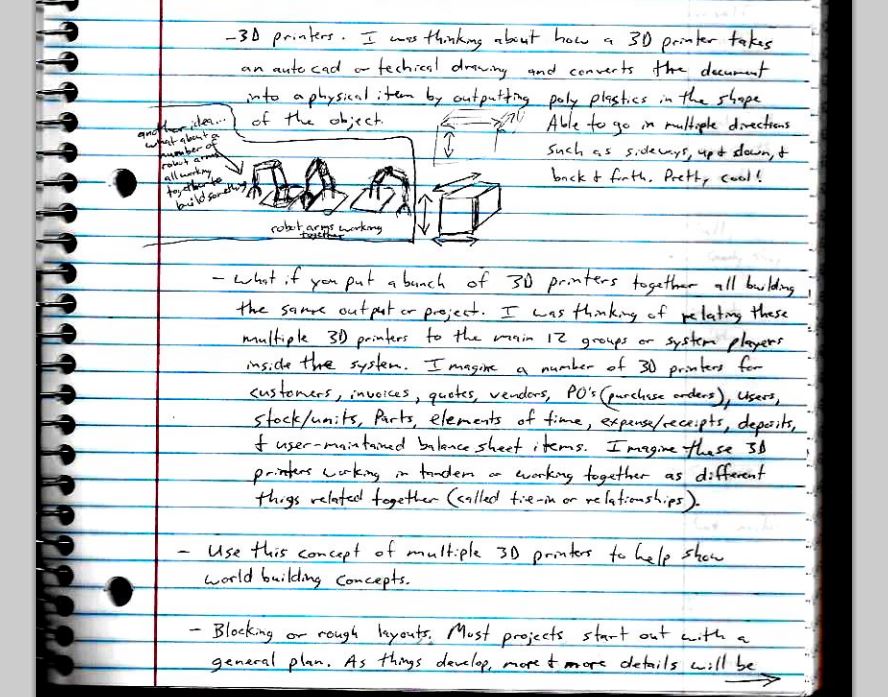 -3D printers. I was thinking about how a 3D printer takes
an auto cad or techical drawing and converts the document
into a physical item by outputting poly plastics in the shape
of the object.
Able to go in multiple directions
such as sideways, up & down, &
back & forth. Pretty cool!
another idea...
what about a
number of
robot arms
all working
together to
build something
robot arms working
together
- What if you put a bunch of 3D printers together all building
the same output or project. I was thinking of relating these
multiple 3D printers to the main 12 groups or system players
inside the system. Imagine a number of 3D printers for
customers, invoices, quotes, vendors, PO's (purchase orders), users,
stock/units, Parts, elements of time, expense/receipts, deposits,
& user-maintained balance sheet items. Imagine these 3D
printers working in tandem or working together as different
thigs related together (called tie-in or relationships).
- Use this concept of multiple 3D printers to help show
world building concepts.
- Blocking or rough layouts. Most projects start out with a
general plan. As things develop, more & more details will be